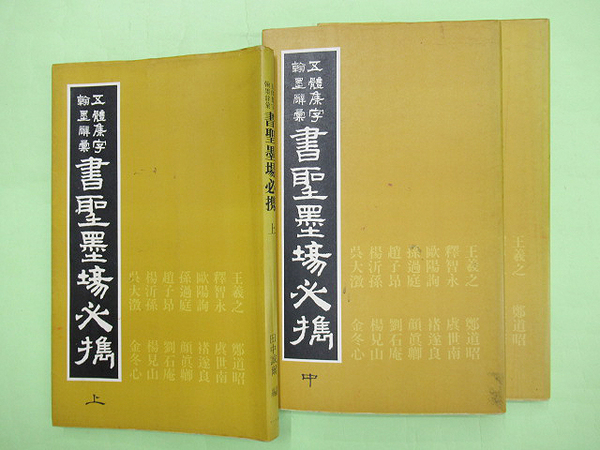 五體集字
翰墨辭彙
書聖墨場必携
上
王羲之 鄭道昭
釋智永 虞世南
歐陽詢 褚遂良
孫過庭 顔眞卿
趙子昂 劉石庵
楊沂孫 楊見山
呉大澂 金冬心
書聖墨場必携 上
編
五體集字
翰墨辭彙
書聖墨場必携
中
王羲之 鄭道昭
釋智永 虞世南
歐陽詢 褚遂良
孫過庭 顔眞卿
趙子昂 劉石庵
楊沂孫 楊見山
呉大澂 金冬心
王羲之 鄭道昭